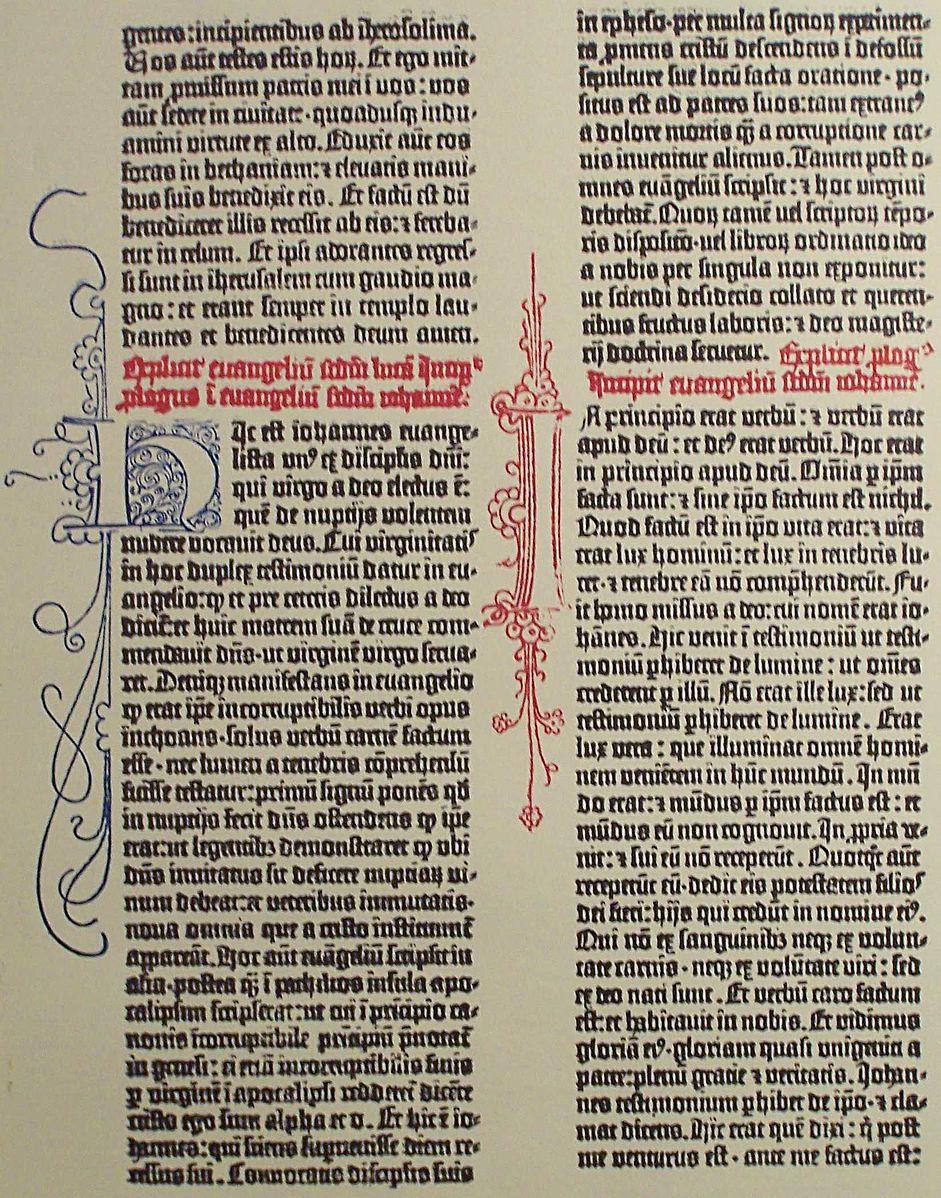 gentes: incipientibus ab iherosolima.
Vos aūt testes estis horꝝ. Et ego mit-
tam ꝓmissum patris mei ī vos: vos
aūt sedete in civitate · quoadusqꝫ indu-
amini virtute ex alto. Eduxit aūt eos
foras in bethaniam: ⁊ elevatis mani-
bus suis benedixit eis. Et factū est dū
benediceret illis recessit ab eis: ⁊ ferba-
tur in celum. Et ipsi adorantes regres-
si sunt in iherusalem cum gaudio ma-
gno: et erant semper in templo lau-
dantes et benedicentes deum amen.
Explicit evangeliū scdm lucā
plogus ī evangeliū scdm iohannē.
Hic est iohannes evange-
lista unꝰ ex discipulis dn̄i:
qui virgo a deo electus ē:
quē de nuptijs volentem
nubere vocavit deus. Cui virginitatis
in hoc duplex testimoniū datur in eu-
angelio: ꝙ et pre ceteris dilectus a deo
dicit᷑: et huic matrem suā de cruce com-
mendavit dn̄s · ut virginē virgo serva-
ret. Deniqꝫ manifestans in euangelio
ꝙ erat ip̄e incorruptibilis verbi opus
inchoans · solus verbū carnē factum
esse · nec lumen a tenebris cōprehensū
fuisse testatur: primū signū ponēs qd̄
in nuptijs fecit dn̄s ostendens ꝙ ip̄e
erat: ut legentibꝫ demonstraret ꝙ ubi
dn̄s invitatus sit deficere nuptiaꝝ vi-
num debeat: et veteribus immutatis ·
nova omnia que a cristo instituunt᷑
appareāt. Hoc aūt euāgeliū scripsit in
asia · postea qͣꝫ ī pathmos insula apo-
calipsim scripserat: ut cui ī prīcipio ca-
nonis īcorruptibile prīcipiū p̄notat᷑
in genesi: ei etiā incorruptibilis finis
ꝑ virginē ī apocalipsi redderet᷑ dicēte
cristo ego sum alpha et o. Et hic ē io-
hannes: qui sciens supervenisse diem re-
cessus sui. Convocatis discipulis suis
in epheso · per multa signoꝝ experimen-
ta ꝓmens cristū descendens ī defossū
sepulture sue locū facta oratione · po-
situs est ad patres suos: tam extraneꝰ
a dolore mortis qͣꝫ a corruptione car-
nis invenitur alienus. Tamen post o-
mnes euāgeliū scripsit: ⁊ hoc virgini
debebat᷑. Quoꝝ tamē vel scriptoꝝ tēpo-
ris dispositō · vel libroꝝ ordinatio ideo
a nobis per singula non exponitur:
ut sciendi desiderio collato et queren-
tibus fructus laboris: ⁊ deo magiste-
rij doctrina servetur. Explicit plogꝰ
Incipit evangeliū scdm iohannē.
In principio erat verbū: ⁊ verbū erat
apud deū: et deꝰ erat verbū. Hoc erat
in principio apud deū. Om̄ia ꝑ ip̄m
facta sunt: ⁊ sine ip̄o factum est nichil.
Quod factū est in ip̄o vita erat: ⁊ vita
erat lux hominū: et lux in tenebris lu-
cet · ⁊ tenebre eā nō comp̄henderūt. Fu-
it homo missus a deo: cui nomē erat io-
hānes. Hic venit ī testimoniū ut testi-
moniū ꝑhiberet de lumine: ut om̄es
crederent ꝑ illū. Nō erat ille lux: sed ut
testimoniū ꝑhiberet de lumine. Erat
lux vera: que illuminat omnē homi-
nem venientem in hūc mundū. In mū-
do erat: ⁊ mūdus ꝑ ip̄m factus est: et
mūdus eū non cognovit. In ꝓpria ve-
nit: ⁊ sui eū nō receperūt. Quotqͦt aūt
receperūt eū · dedit eis potestatem filios
dei fieri: hijs qui credūt in nomine eiꝰ.
Qui nō ex sanguinibꝫ neqꝫ ex volun-
tate carnis · neqꝫ ex volūtate viri: sed
ex deo nati sunt. Et verbū caro factum
est: et habitavit in nobis. Et vidimus
gloriā eiꝰ · gloriam quasi unigeniti a
patre: plenū gratie ⁊ veritatis. Johan-
nes testimonium ꝑhibet de ip̄o · ⁊ cla-
mat dicens. Hic erat quē dixi: qͥ post
me venturus est · ante me factus est: